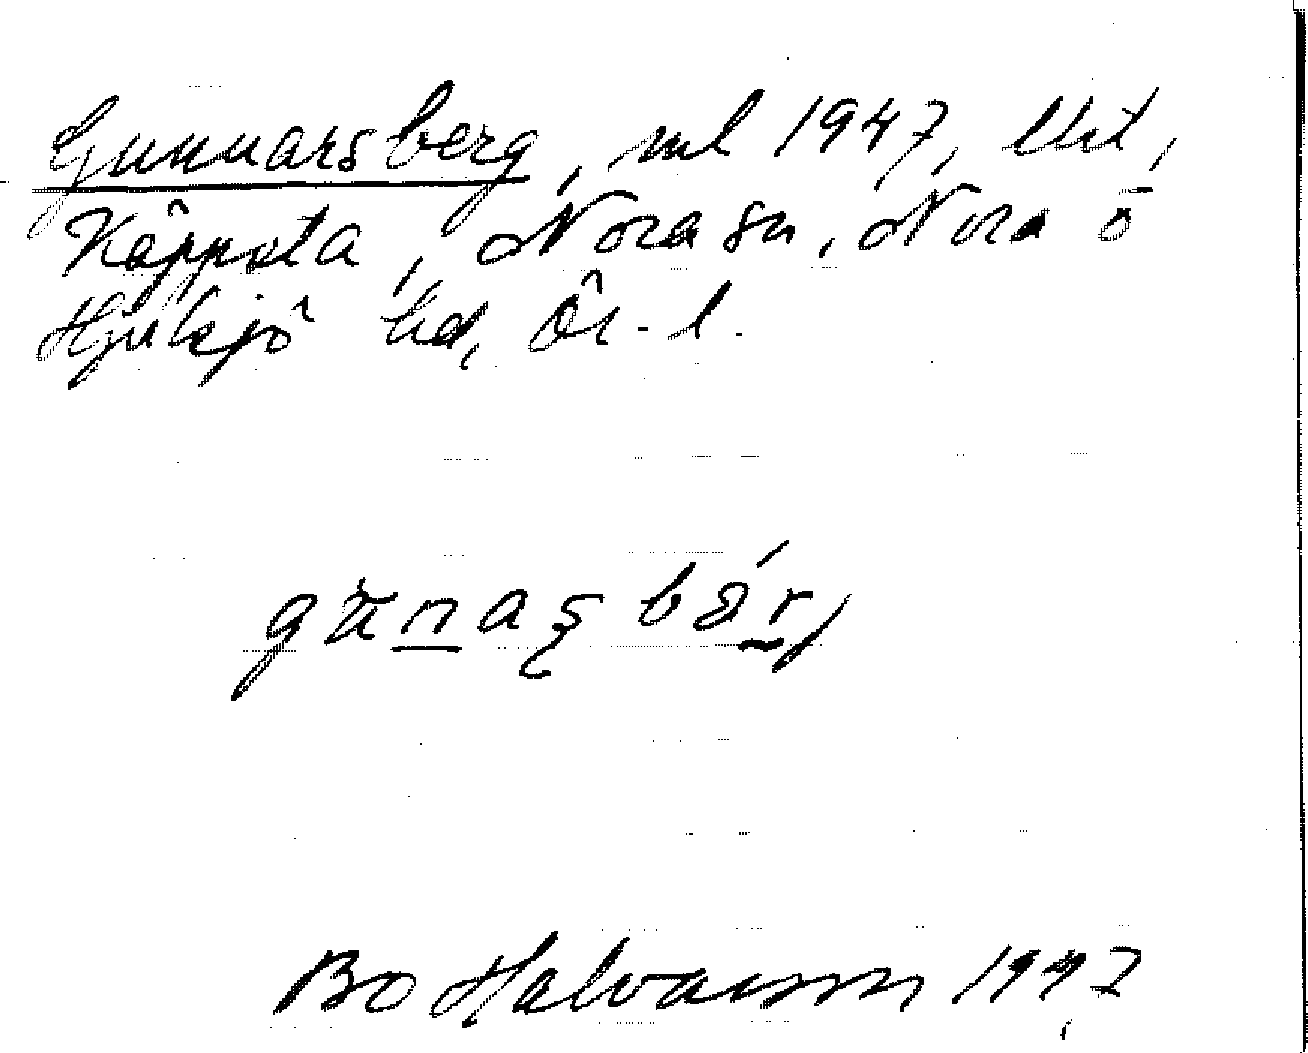 Gunnarsberg, ml 1947, Utt,
Käppsta, Nora sn, Nora o
Hjulsjö hd, Ör. l.
gu̇naʂbár̰j
Bo Halvarsson 1947